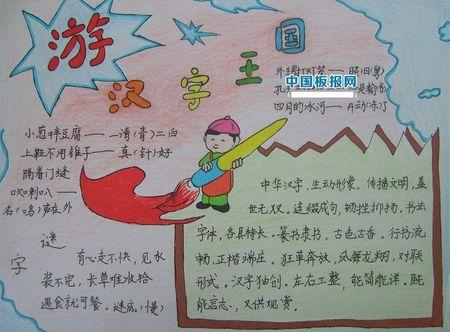 游
汉字王国
中国板报网
外甥打灯笼——照旧(舅)
孔
四月的冰河——开动(冻)了
小葱拌豆腐——一清(青)二白
上鞋不用锥子——真(针)好
隔着门缝
吹喇叭——
名(鸣)声在外
字谜
有心走不快，见水
装不完，长草难收拾
遇食就可餐。谜底(慢)
中华汉字，生动形象。传播文明，盖
世无双。连缀成句，顿挫抑扬。书法
字体，各具特长。篆书隶书，古色古香。行书流
畅，正楷端庄。狂草奔放，凤舞龙翔。对联
形式，汉字独创。左右工整，能简能详。既
能言志，又供观赏。